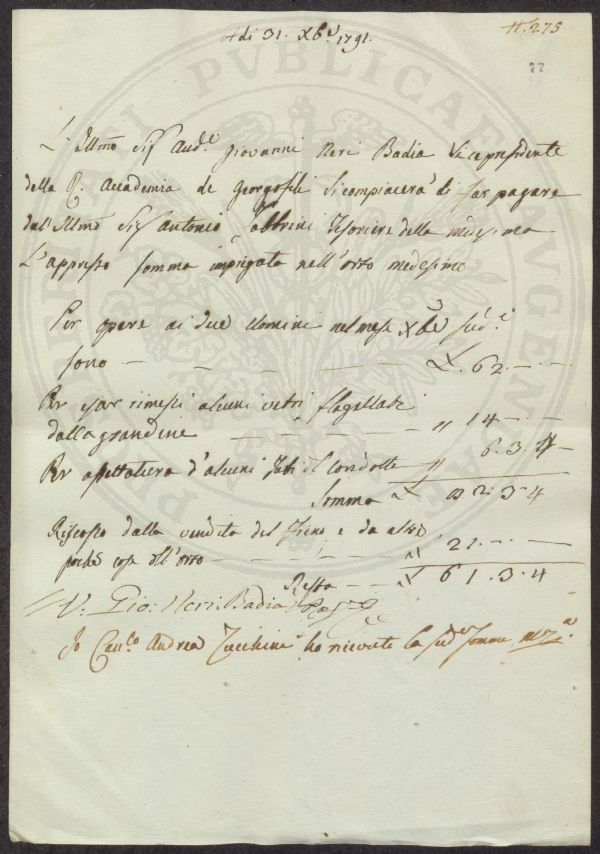 N.° 275
Adi 31. Xbre 1791.
77
L'Illmo Sigr Aud.e Giovanni Neri Badia Vicepresidente
della R. Accademia de Georgofili Si compiacerà di far pagare
dall'Illmo Sigr Antonio Fabbrini Tesoriere della medesima
L'appresso somma impiegata nell'orto medesimo
Per opere ai due Uomini nel mese Xbre sud.e
sono — — — — £. 62. — . —
Per far rimessi alcuni vetri flagellati
dalla grandine — — — " 14 — . —
Per assettatura d'alcuni Tubi di condotte " 6. 3. 4
Somma £ 82. 3. 4
Riscosso dalla vendita del Fieno e da altre
poche cose dell'orto — — — " 21. — . —
Resta — — £ 61. 3. 4
V: Gio: Neri Badia
Io Canco Andrea Zucchini ho ricevute la sud.a somma
PUBLICAE
AUGENDAE